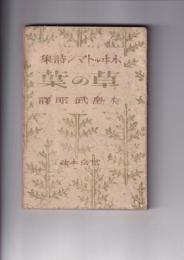 ホヰットマン詩集
草の葉
有島武郎譯